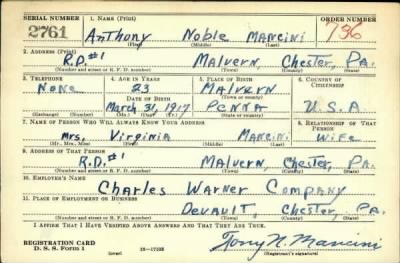 SERIAL NUMBER 1. NAME (Print) ORDER NUMBER
2761 Anthony Noble Mancini 796
(First) (Middle) (Last)
2. ADDRESS (Print)
R.D.#1 Malvern, Chester, Pa.
(Number and street or R. F. D. number) (Town) (County) (State)
3. TELEPHONE 4. AGE IN YEARS 5. PLACE OF BIRTH 6. COUNTRY OF CITIZENSHIP
None 23 Malvern
DATE OF BIRTH (Town or county)
March 31, 1917 Penna U.S.A
(Exchange) (Number) (Mo.) (Day) (Yr.) (State or country)
7. NAME OF PERSON WHO WILL ALWAYS KNOW YOUR ADDRESS 8. RELATIONSHIP OF THAT PERSON
Mrs. Virginia Mancini Wife
(Mr., Mrs., Miss) (First) (Middle) (Last)
9. ADDRESS OF THAT PERSON
R.D.#1 Malvern, Chester, Pa.
(Number and street or R. F. D. number) (Town) (County) (State)
10. EMPLOYER'S NAME
Charles Warner Company
11. PLACE OF EMPLOYMENT OR BUSINESS
Devault, Chester, Pa.
(Number and street or R. F. D. number) (Town) (County) (State)
I AFFIRM THAT I HAVE VERIFIED ABOVE ANSWERS AND THAT THEY ARE TRUE.
REGISTRATION CARD
D. S. S. Form 1 (over) Tony N. Mancini
(Registrant's signature)